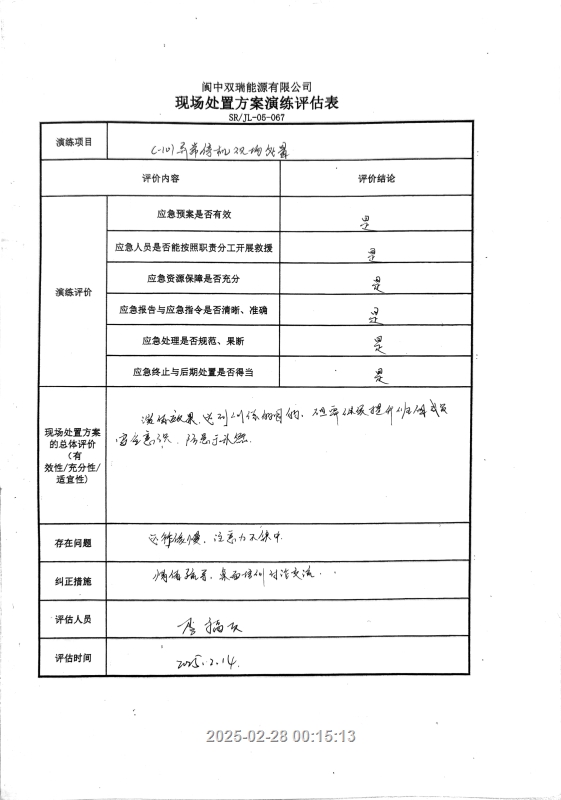 阆中双瑞能源有限公司
现场处置方案演练评估表
SR/JL-05-067
演练项目
C-101异常停机现场处置
评价内容
评价结论
演练评价
应急预案是否有效
是
应急人员是否能按照职责分工开展救援
是
应急资源保障是否充分
是
应急报告与应急指令是否清晰、准确
是
应急处理是否规范、果断
是
应急终止与后期处置是否得当
是
现场处置方案
的总体评价
（有
效性/充分性/
适宜性）
演练效果达到训练的目的，继续提升班组成员
安全意识，防患于未然。
存在问题
缓慢，注意力不集中
纠正措施
桌面培训讨论交流
评估人员
评估时间
2025.2.14.
2025-02-28 00:15:13